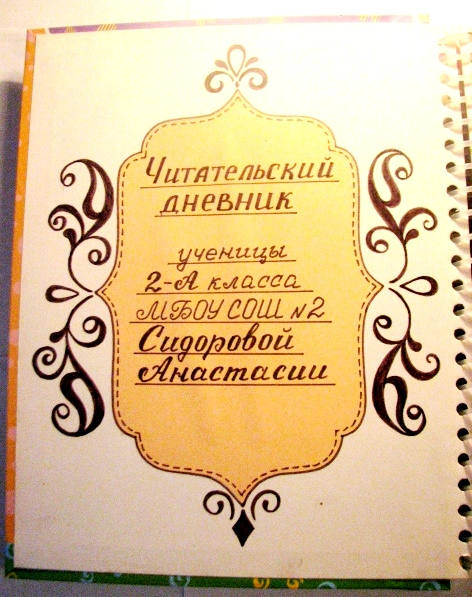 Читательский
дневник
ученицы
2-А класса
МБОУ СОШ №2
Сидоровой
Анастасии